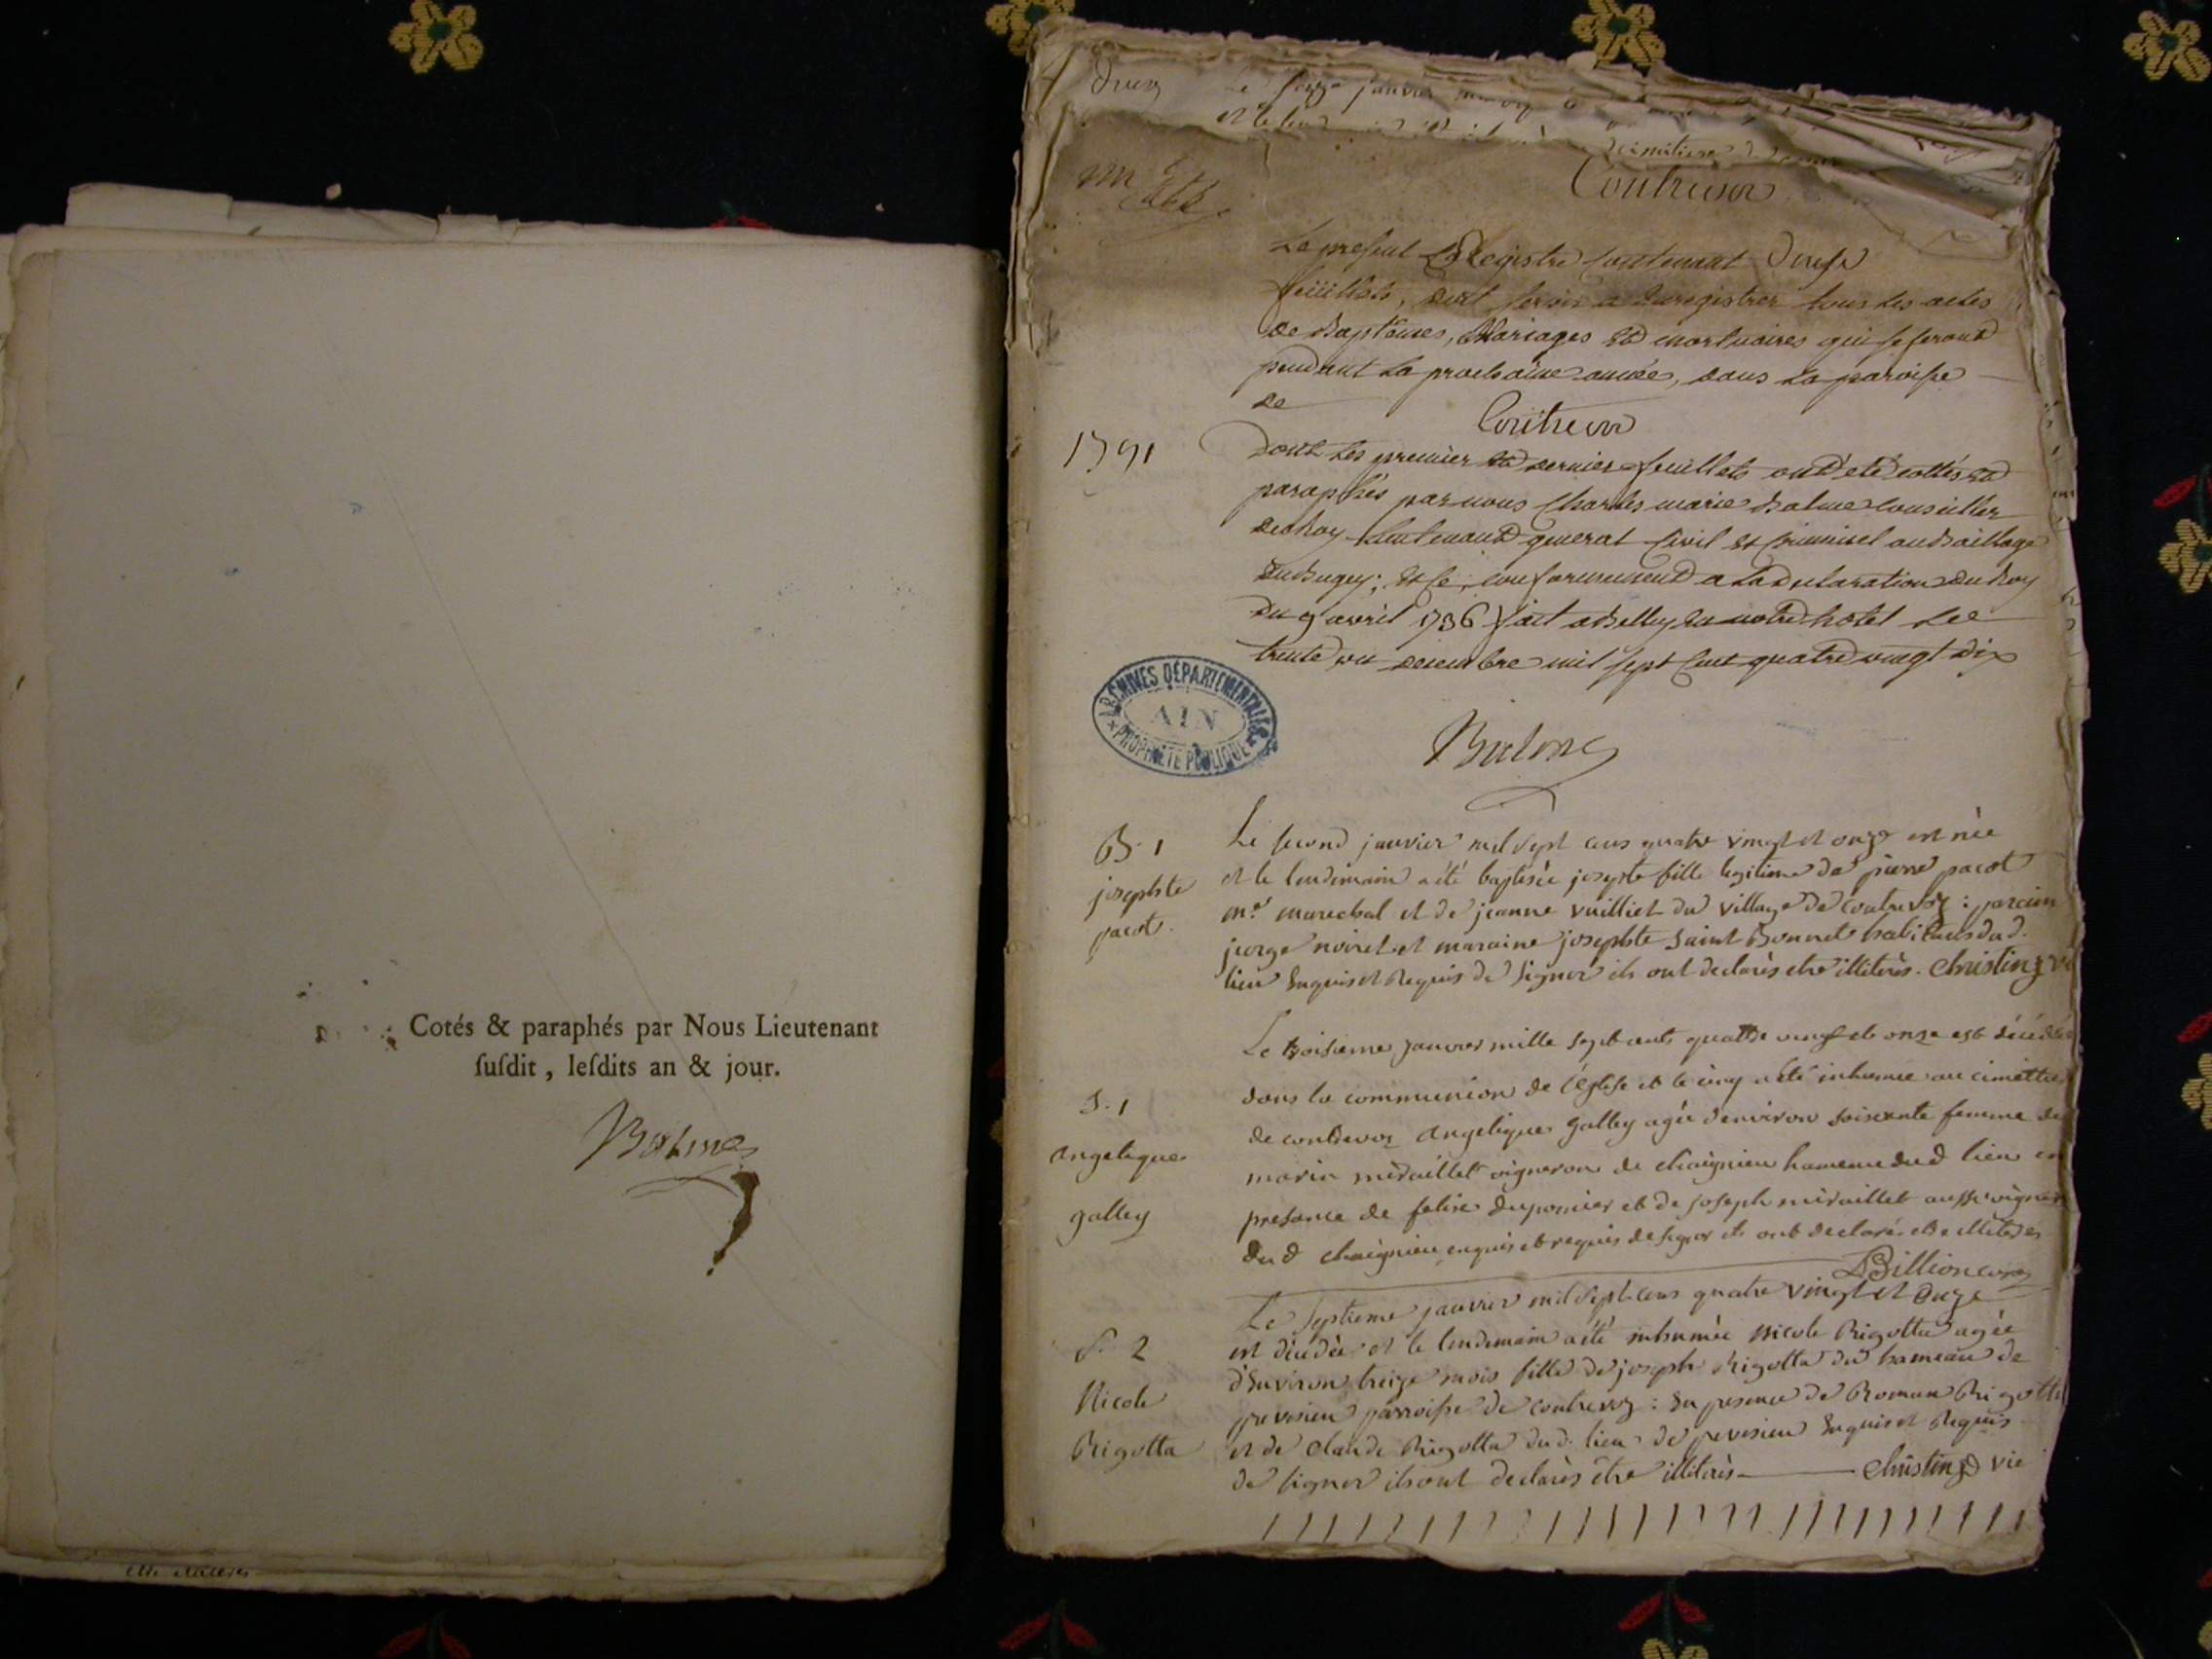 Cotés & paraphés par Nous Lieutenant
ſuſdit, leſdits an & jour.
Balme
Le seize janvier
Contrevoz
Le present Registre Contenant Douse
feüillets, doit servir a Enregistrer tous les actes
de Baptêmes, Mariages et mortuaires qui se feront
pendant la prochaine année, dans la paroisse
de
Contrevoz
1791
Dont les premier et dernier feuillets ont été cottés et
paraphés par nous Charles marie Balme Conseiller
du Roy Lieutenant general Civil et Criminel au Bailliage
du Bugey; et ce, conformement a la declaration du Roy
du 9 avril 1736 fait a Belley en notre hôtel Le
trente un decembre mil sept Cent quatre vingt dix
ARCHIVES DÉPARTEMENTALES
AIN
PROPRIÉTÉ PUBLIQUE
Balme
B. 1
josephte
pacot.
Le second janvier mil sept cens quatre vingt et onze est née
et le lendemain a été baptisée josephte fille legitime de pierre pacot
me. marechal et de jeanne vuilliet du village de contrevoz : parain
jorge noiret et maraine josephte Saint Bonnet habitants dud.
lieu Enquis et Requis de Signer ils ont declarès etre illiterès. Christin
S. 1
angelique
galley
Le troisieme janvier mille sept cents quattre vingt et onze est décédée
dans la communion de l'église et le cinq a été inhumée au cimettiere
de contrevoz angelique galley agée d'environ soisente femme de
marin miraillet vigneron de chaignieu hameau dud lieu en
presance de felise dupomier et de joseph miraillet aussi vigneron
dud chaignieu enquis et requis de signer ils ont declaré etre illiteres
Billion curé
S. 2
Nicole
Rigotta
Le septieme janvier mil sept cens quatre vingt et onze
est décedée et le lendemain a été inhumée Nicole Rigotta agée
d'Environ treize mois fille de joseph Rigotta du hameau de
prevesieu parroisse de contrevoz : En presence de Roman Rigotta
et de Claude Rigotta dud. lieu de prevesieu Enquis et Requis
de signer ils ont declarès être illiterès Christin vic